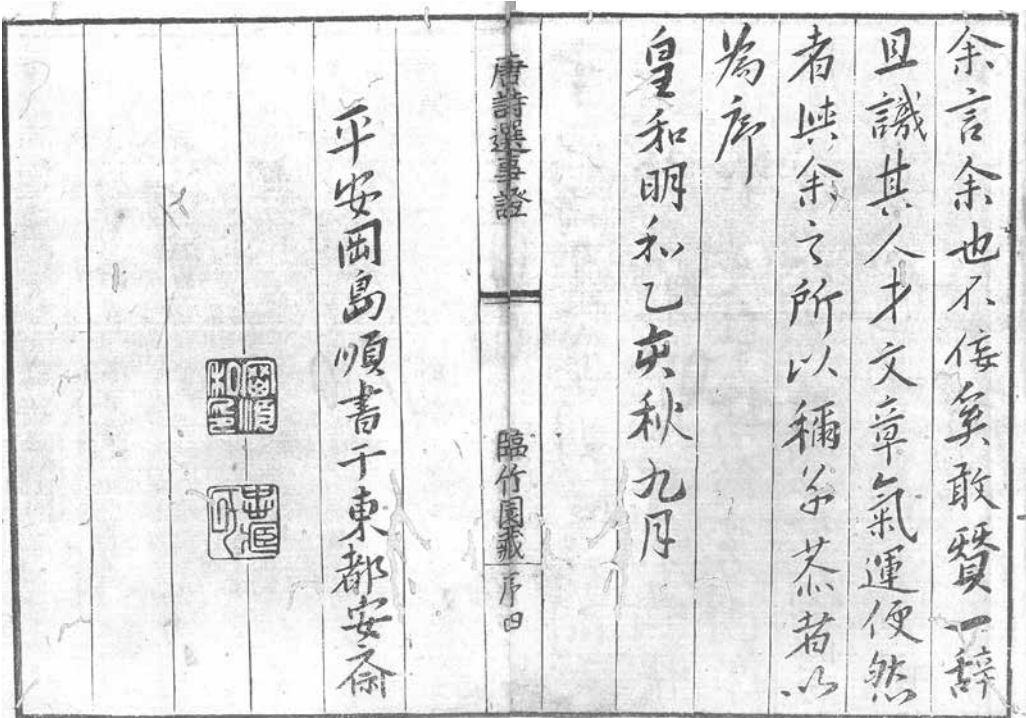 余言余也不佞矣敢賛一辞
且識其人才文章氣運便然
者與余之所以稱子恭者以
為序
皇和明和乙亥秋九月
唐詩選事證
臨竹園藏
序四
平安岡島順書于東都安斎